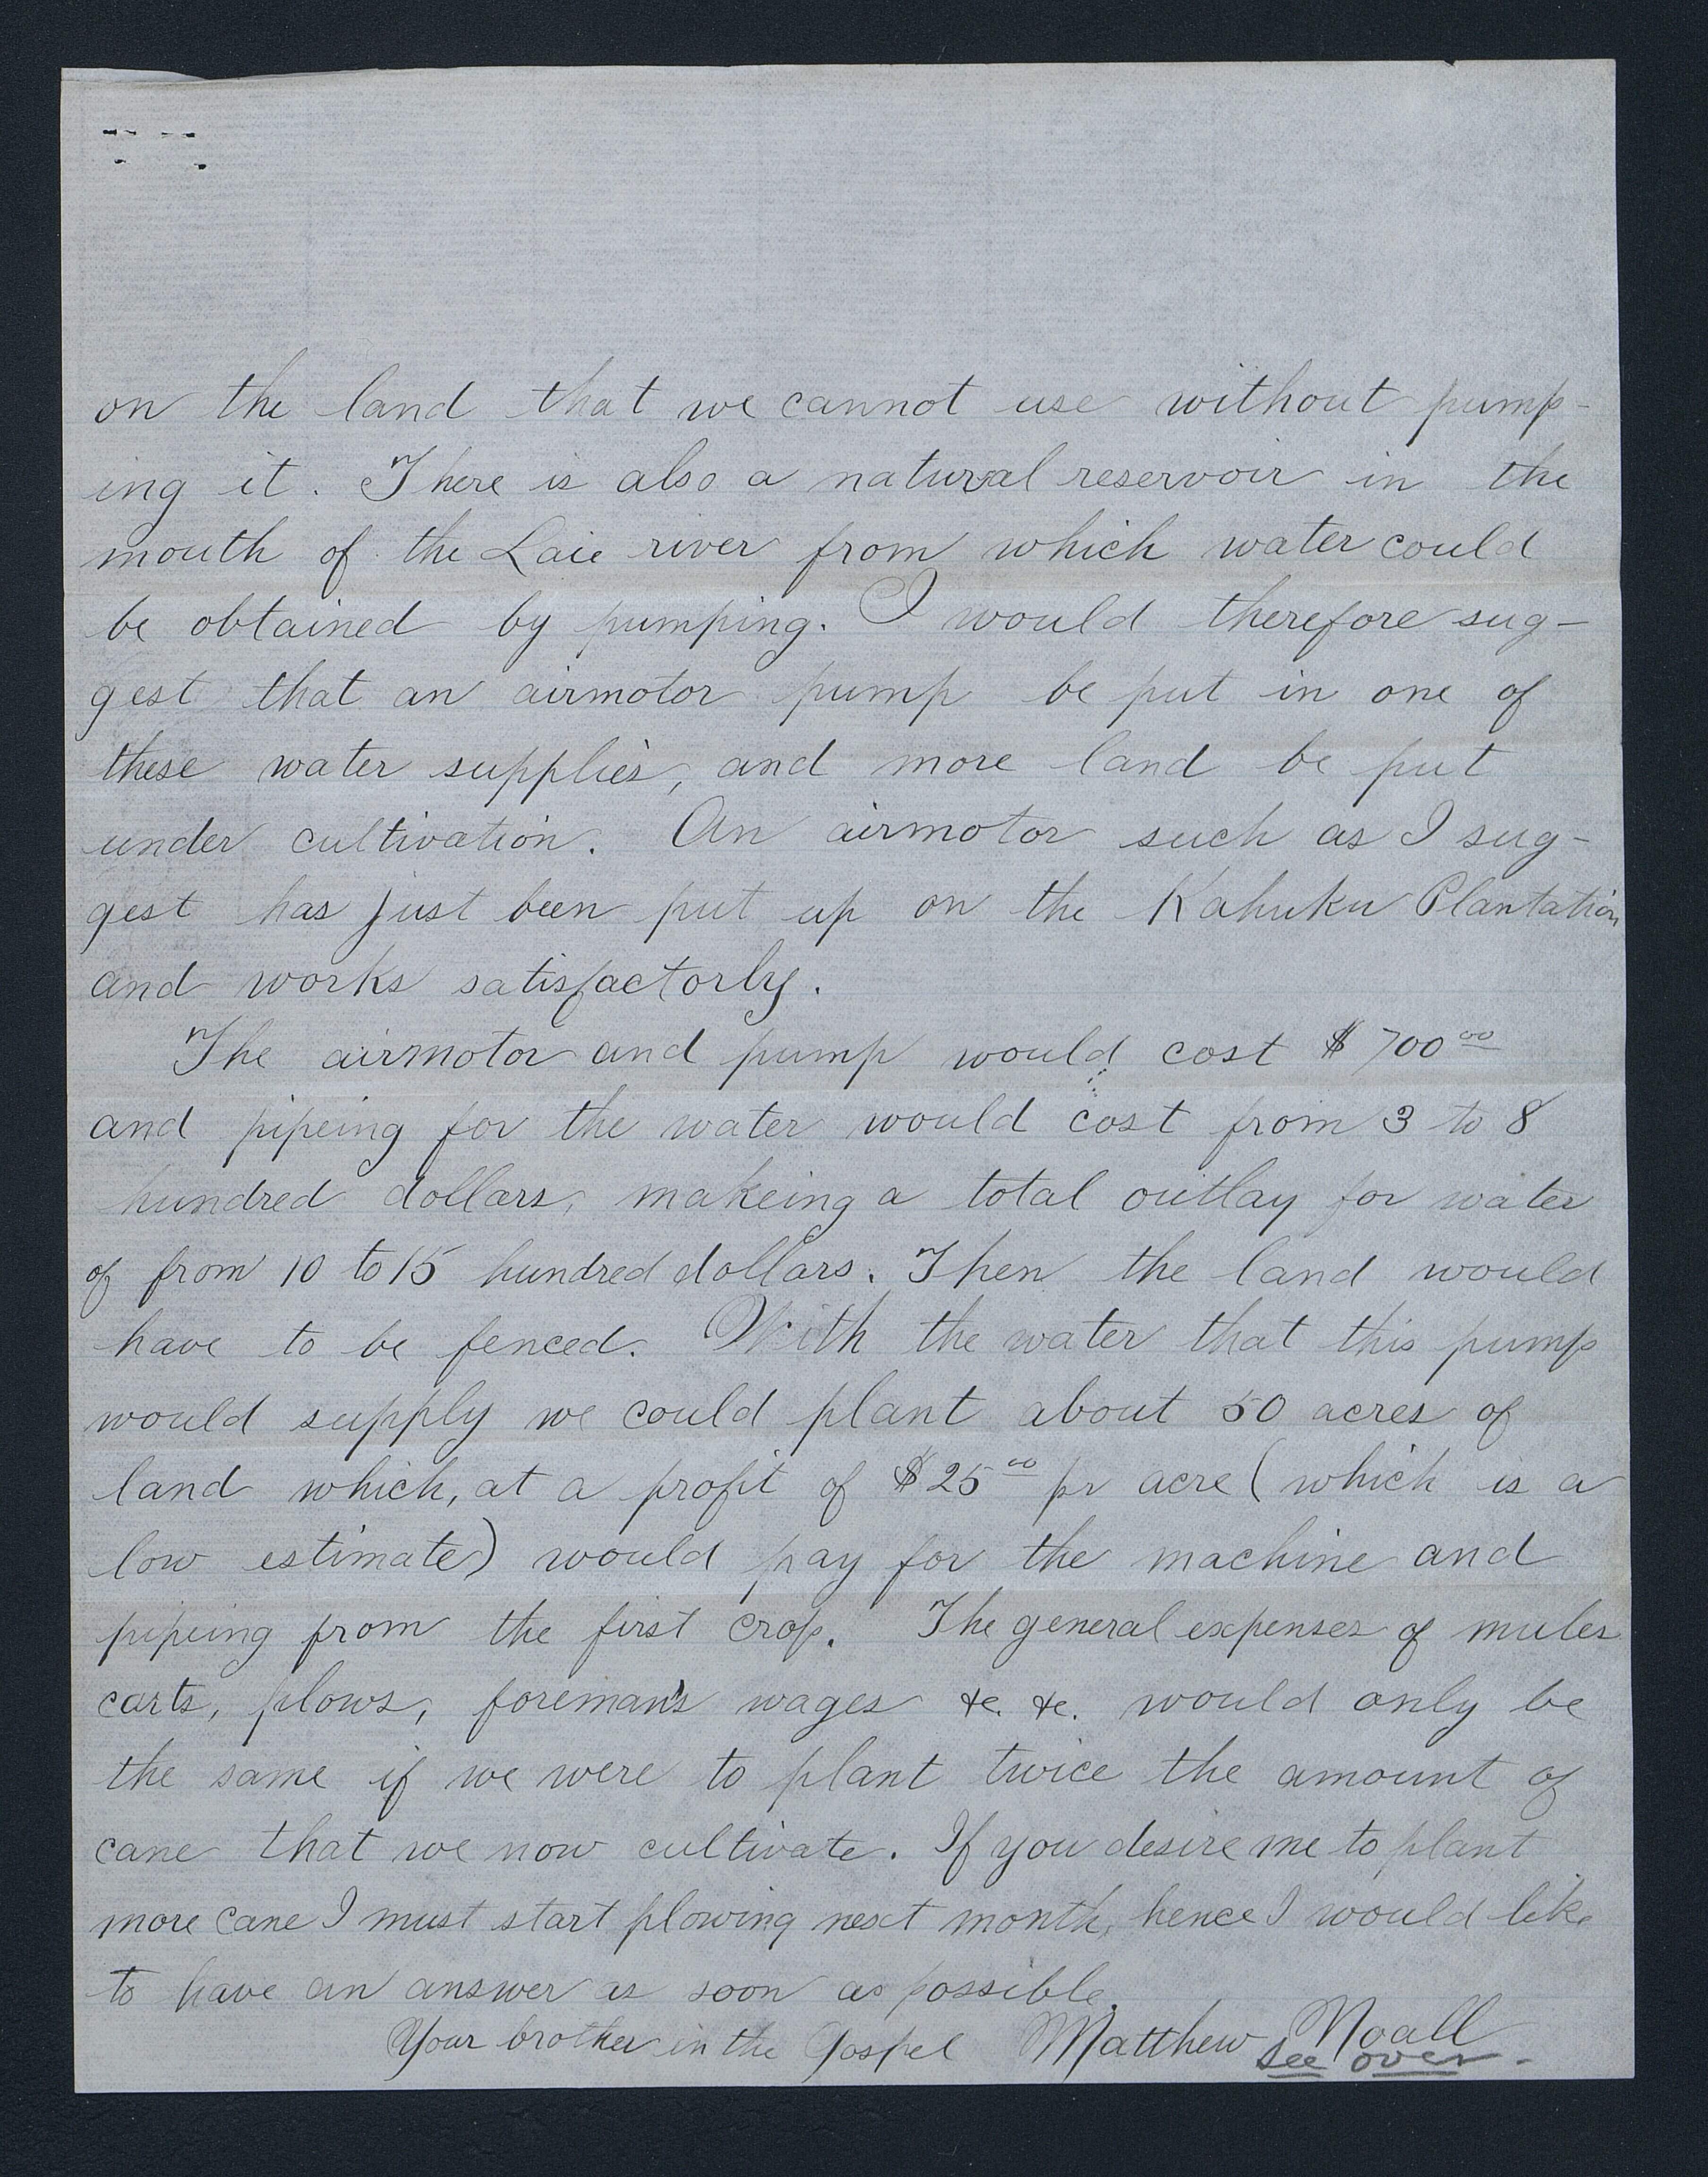 on the land that we cannot use without pump-
ing it. There is also a natural reservoir in the
mouth of the Laie river from which water could
be obtained by pumping. I would therefore sug-
gest that an airmotor pump be put in one of
these water supplies, and more land be put
under cultivation. An airmotor such as I sug-
gest has just been put up on the Kahuku Plantation
and works satisfactorly.
The airmotor and pump would cost $700 00
and pipeing for the water would cost from 3 to 8
hundred dollars, makeing a total outlay for water
of from 10 to 15 hundred dollars. Then the land would
have to be fenced. With the water that this pump
would supply we could plant about 50 acres of
land which, at a profit of $25 00 pr acre (which is a
low estimate) would pay for the machine and
pipeing from the first crop. The general expenses of mules
carts, plows, foreman's wages &c. &c. would only be
the same if we were to plant twice the amount of
cane that we now cultivate. If you desire me to plant
more cane I must start plowing next month, hence I would like
to have an answer as soon as possible.
Your brother in the Gospel Matthew Noall
see over.